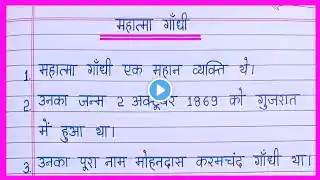 महात्मा गाँधी
1. महात्मा गाँधी एक महान व्यक्ति थे।
2. उनका जन्म 2 अक्टूबर 1869 को गुजरात
में हुआ था।
3. उनका पूरा नाम मोहनदास करमचंद गाँधी था।